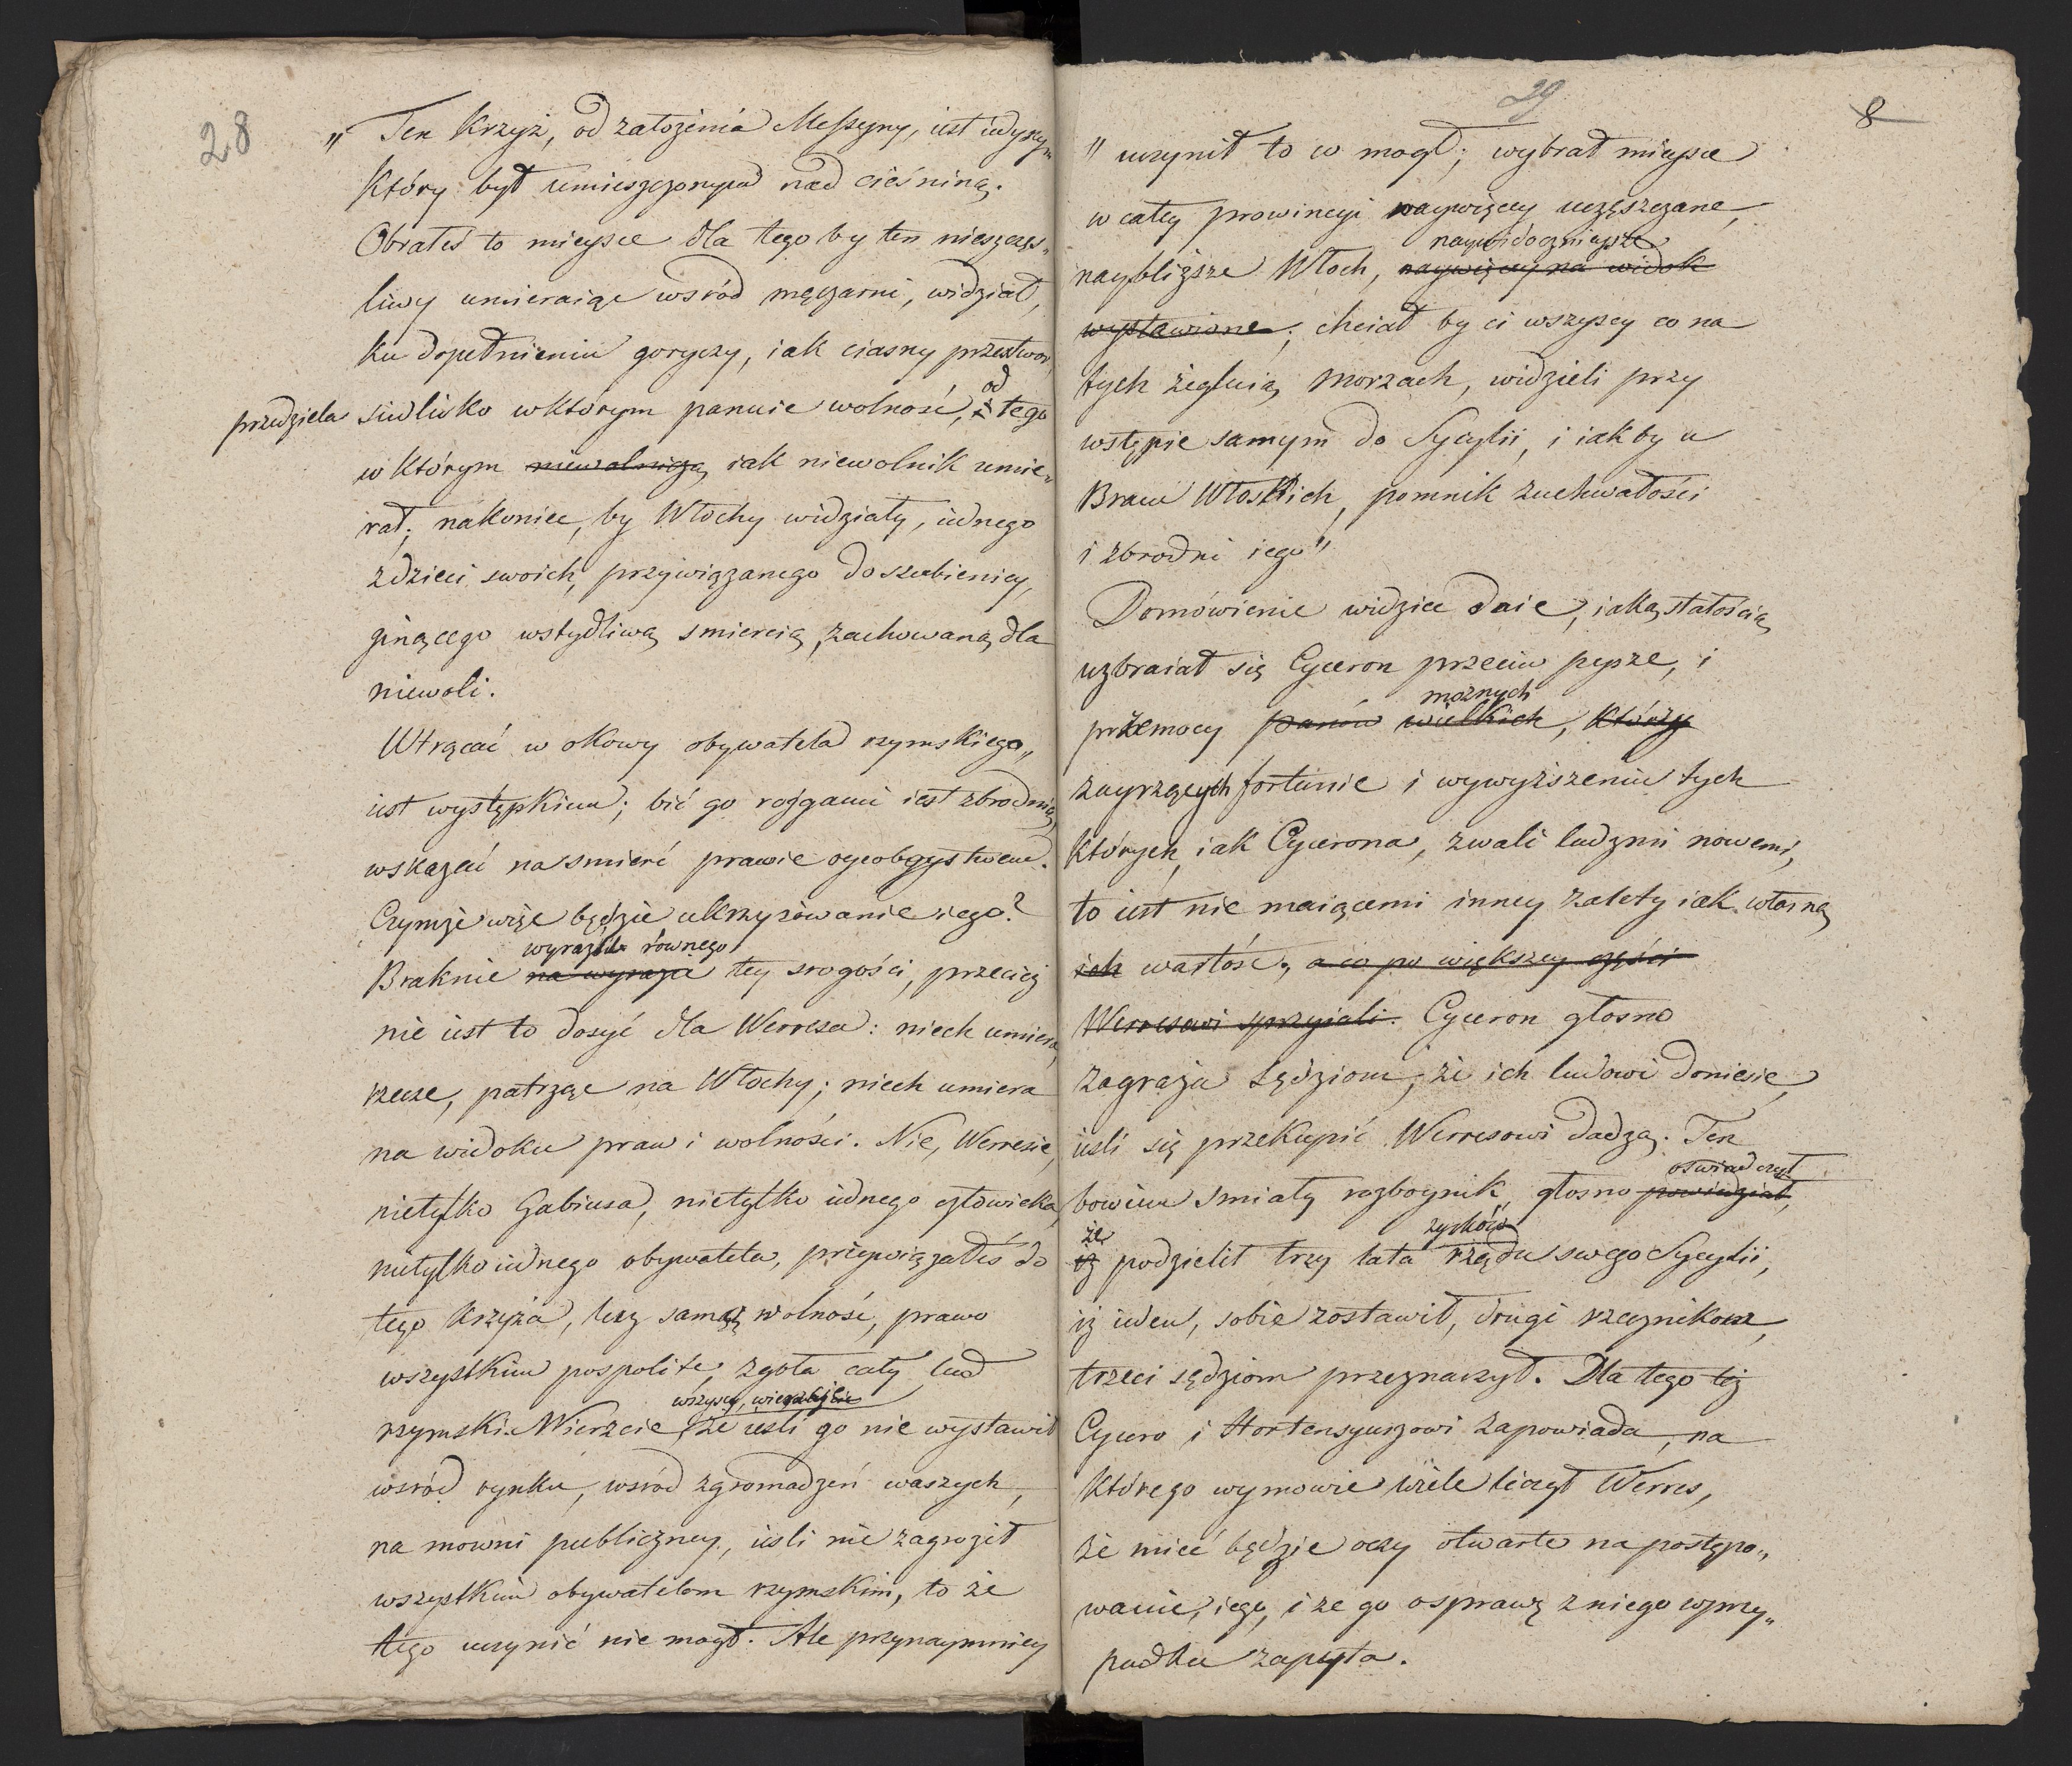 28
" Ten Krzyż, od założenia Messyny, iest iedynym
który był umieszczonym nad cieśniną.
Obrałeś to mieysce dla tego by ten nieszczęs„
liwy umieraiąc wsród męczarni, widział,
ku dopełnieniu goryczy, iak ciasny przestwor,
od
przedziela siedlisko wktórym panuie wolność, z tego
w którym niewolniczą iak niewolnik umie„
rał; nakoniec, by Włochy widziały, iednego
zdzieci swoich, przywiązanego do szubienicy,
ginącego wstydliwą smiercią, zachowaną dla
niewoli.
Wtrącać w okowy obywatela rzymskiego„
iest występkiem; bić go rózgami iest zbrodnią,
wskazać na smierć prawie oycobóystwem.
Czymże więc będzie ukrzyżowanie iego?
wyrazu równego
Braknie na wyrazie tey srogości, przecież
nie iest to dosyć dla Werresa: niech umiera,
rzecze, patrząc na Włochy; niech umiera
na widoku praw i wolności. Nie, Werresie,
nietylko Gabiusa, nietylko iednego człowieka,
nietylko iednego obywatela, przywiązałeś do
tego krzyża, lecz samąż wolność, prawo
wszystkim pospolite, zgoła cały lud
wszyscy,
rzymski. Wierzcie, że iesli go nie wystawił
wsród rynku, wsród zgromadzeń waszych,
na mowni publiczney, iesli nie zagroził
wszystkim obywatelom rzymskim, to że
tego uczynić nie mógł. Ale przynaymniey
29
8
" uczynił to co mogł; wybrał mieysce
w całey prowincyi naywięcey uczęszczane,
naywidocznieysze
naybliższe Włoch, naywięcey na widok
wystawione; chciał by ci wszyscy co na
tych żegluią morzach, widzieli przy
wstępie samym do Sycylii, i iakby u
Bram Włoskich, pomnik zuchwałości
i zbrodni iego"
Domówienie widzieć daie, iaką stałością
uzbraiał się Cyceron przeciw pysze, i
możnych
przemocy panów wielkich, którzy
zayrzących fortunie i wywyższeniu tych
których, iak Cycerona, zwali ludzmi nowemi,
to iest nie maiącemi inney zalety iak własną
ich wartość, a co po większey części
Werresowi sprzyiali. Cyceron głosno
zagraża sędziom, że ich ludowi doniesie,
iesli się przekupić Werresowi dadzą. Ten
oświadczył
bowiem smiały rozboynik, głosno powiedział,
że zysków
iż podzielił trzy lata rządu swego Sycylii,
iż ieden, sobie zostawił, drugi rzecznikom,
trzeci sędziom przeznaczył. Dla tego też
Cycero i Hortensyuszowi zapowiada, na
którego wymowie wiele liczył Werres,
że mieć będzie oczy otwarte na postępo„
wanie, iego, i ze go osprawę z niego wprzy„
padku zapyta.